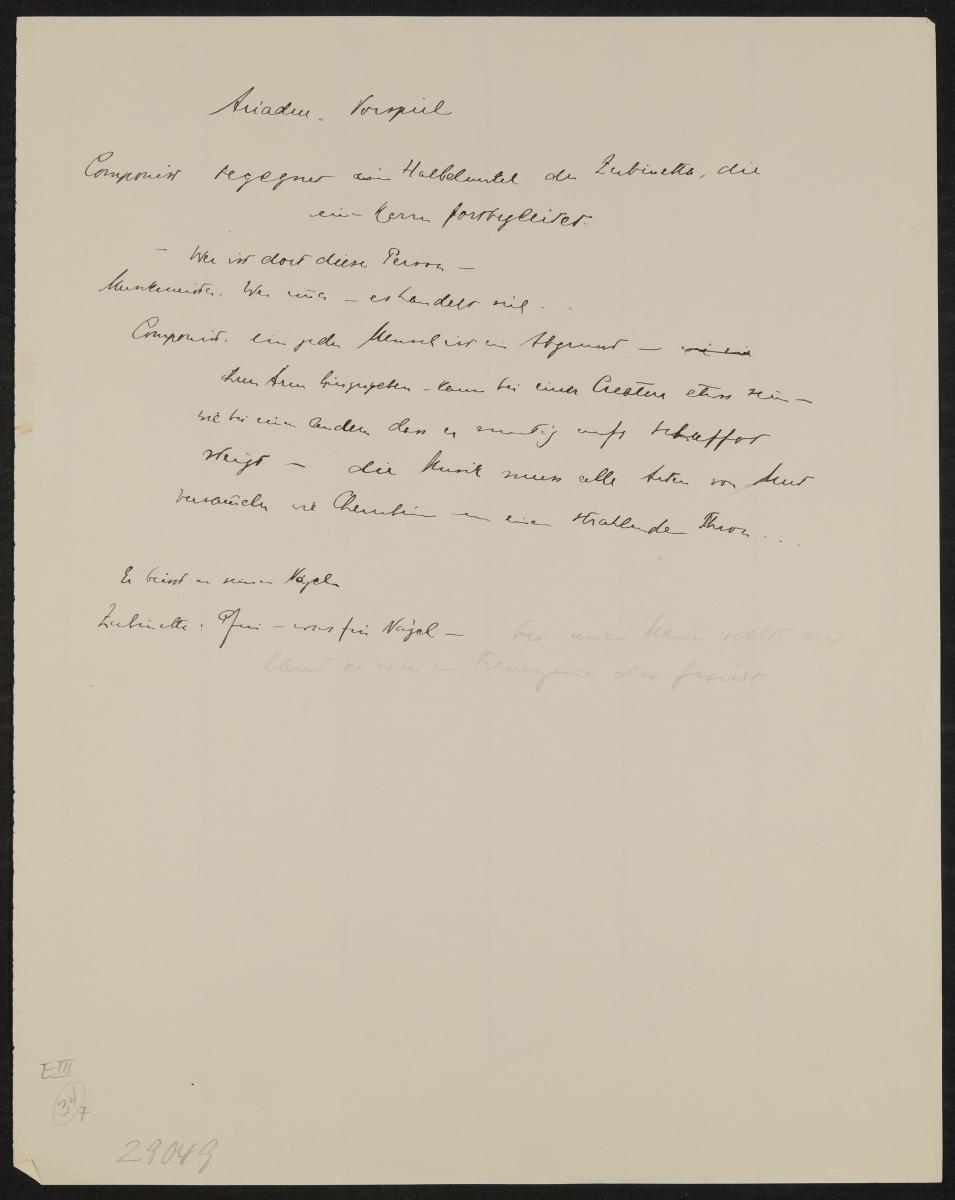 Ariadne. Vorspiel
Componist begegnet im Halbdunkel der Zerbinetta, die
ein Herr fortbegleitet.
– Wer ist dort diese Person –
Musikmeister. Wer – es handelt sich . .
Componist. ein jeder Mensch ist ein Abgrund –
Arm hinzugeben – kann bei einer Creatur etwas sein –
wie bei einem andern dass er mutig aufs Schaffot
steigt – die Musik muss alle Arten von Mut
versammeln wie Cherubim um einen strahlenden Thron . . .
Er beisst an seinen Nägeln
Zerbinetta: Pfui – was für Nägel – bei einem Mann sollte die
Hand
E III
34
7
29049